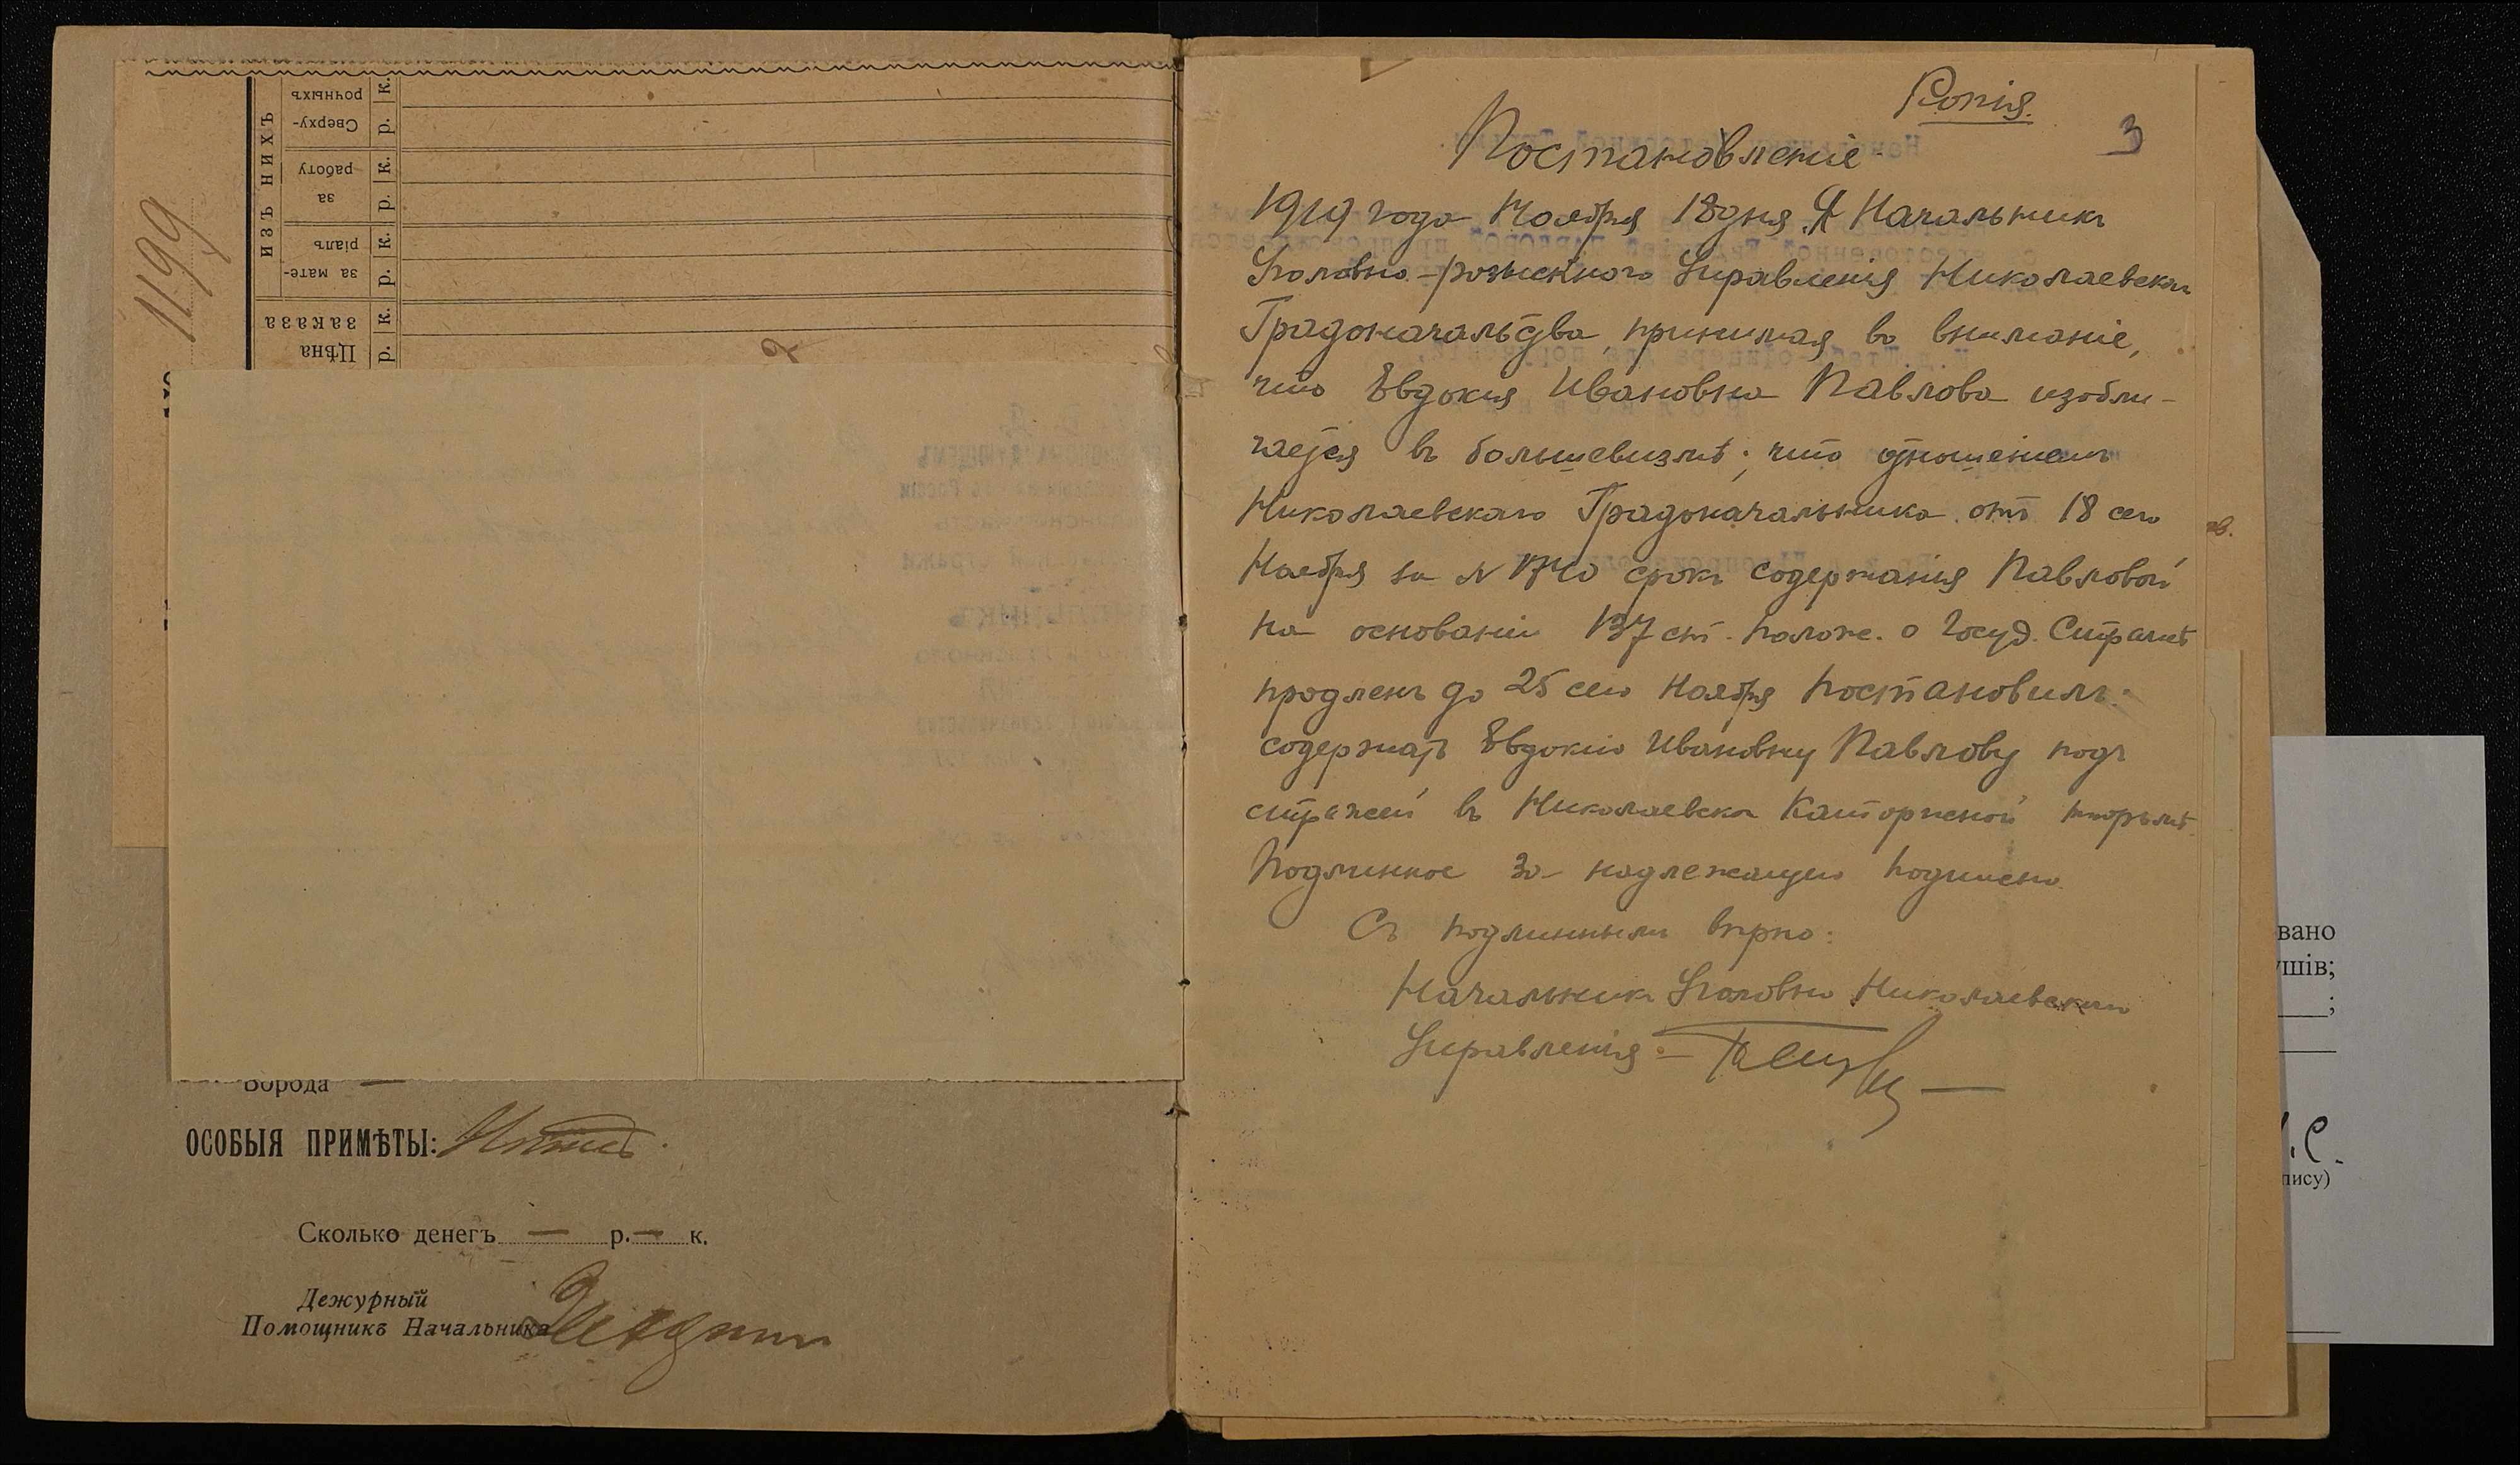 1199
ИЗЪ НИХЪ
Сверху-
рочныхъ
р. к.
за
работу
р. к.
за мате-
ріалъ
р. к.
Цѣна
заказа
р. к.
2
Борода —
ОСОБЫЯ ПРИМѢТЫ:
Сколько денегъ — р. — к.
Дежурный
Помощникъ Начальника
Копія.
3
Постановленіе.
1919 года Ноября 18 дня Я Начальникъ
Уголовно-розыскного Управленія Николаевскаго
Градоначальства, принимая во вниманіе,
что Евдокія Ивановна Павлова изобли-
чается въ большевизмѣ; что отношеніемъ
Николаевскаго Градоначальника отъ 18 сего
Ноября за N 1740 срокъ содержанія Павловой
на основаніи 137 ст. полож. о Госуд. Стражѣ
продленъ до 25 сего Ноября Постановилъ:
содержать Евдокію Ивановну Павлову подъ
стражей въ Николаевск. Каторжной тюрьмѣ.
Подлинное за надлежащею подписью.
Съ подлиннымъ вѣрно:
Начальникъ Уголовно Николаевскаго
Управленія —
вано
ушів;
;
.С.
пису)